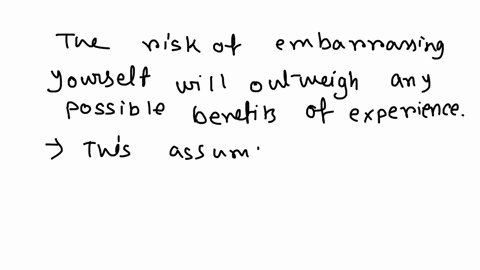 The risk of embarrassing
yourself will outweigh any
possible benefits of experience.
→ This assum